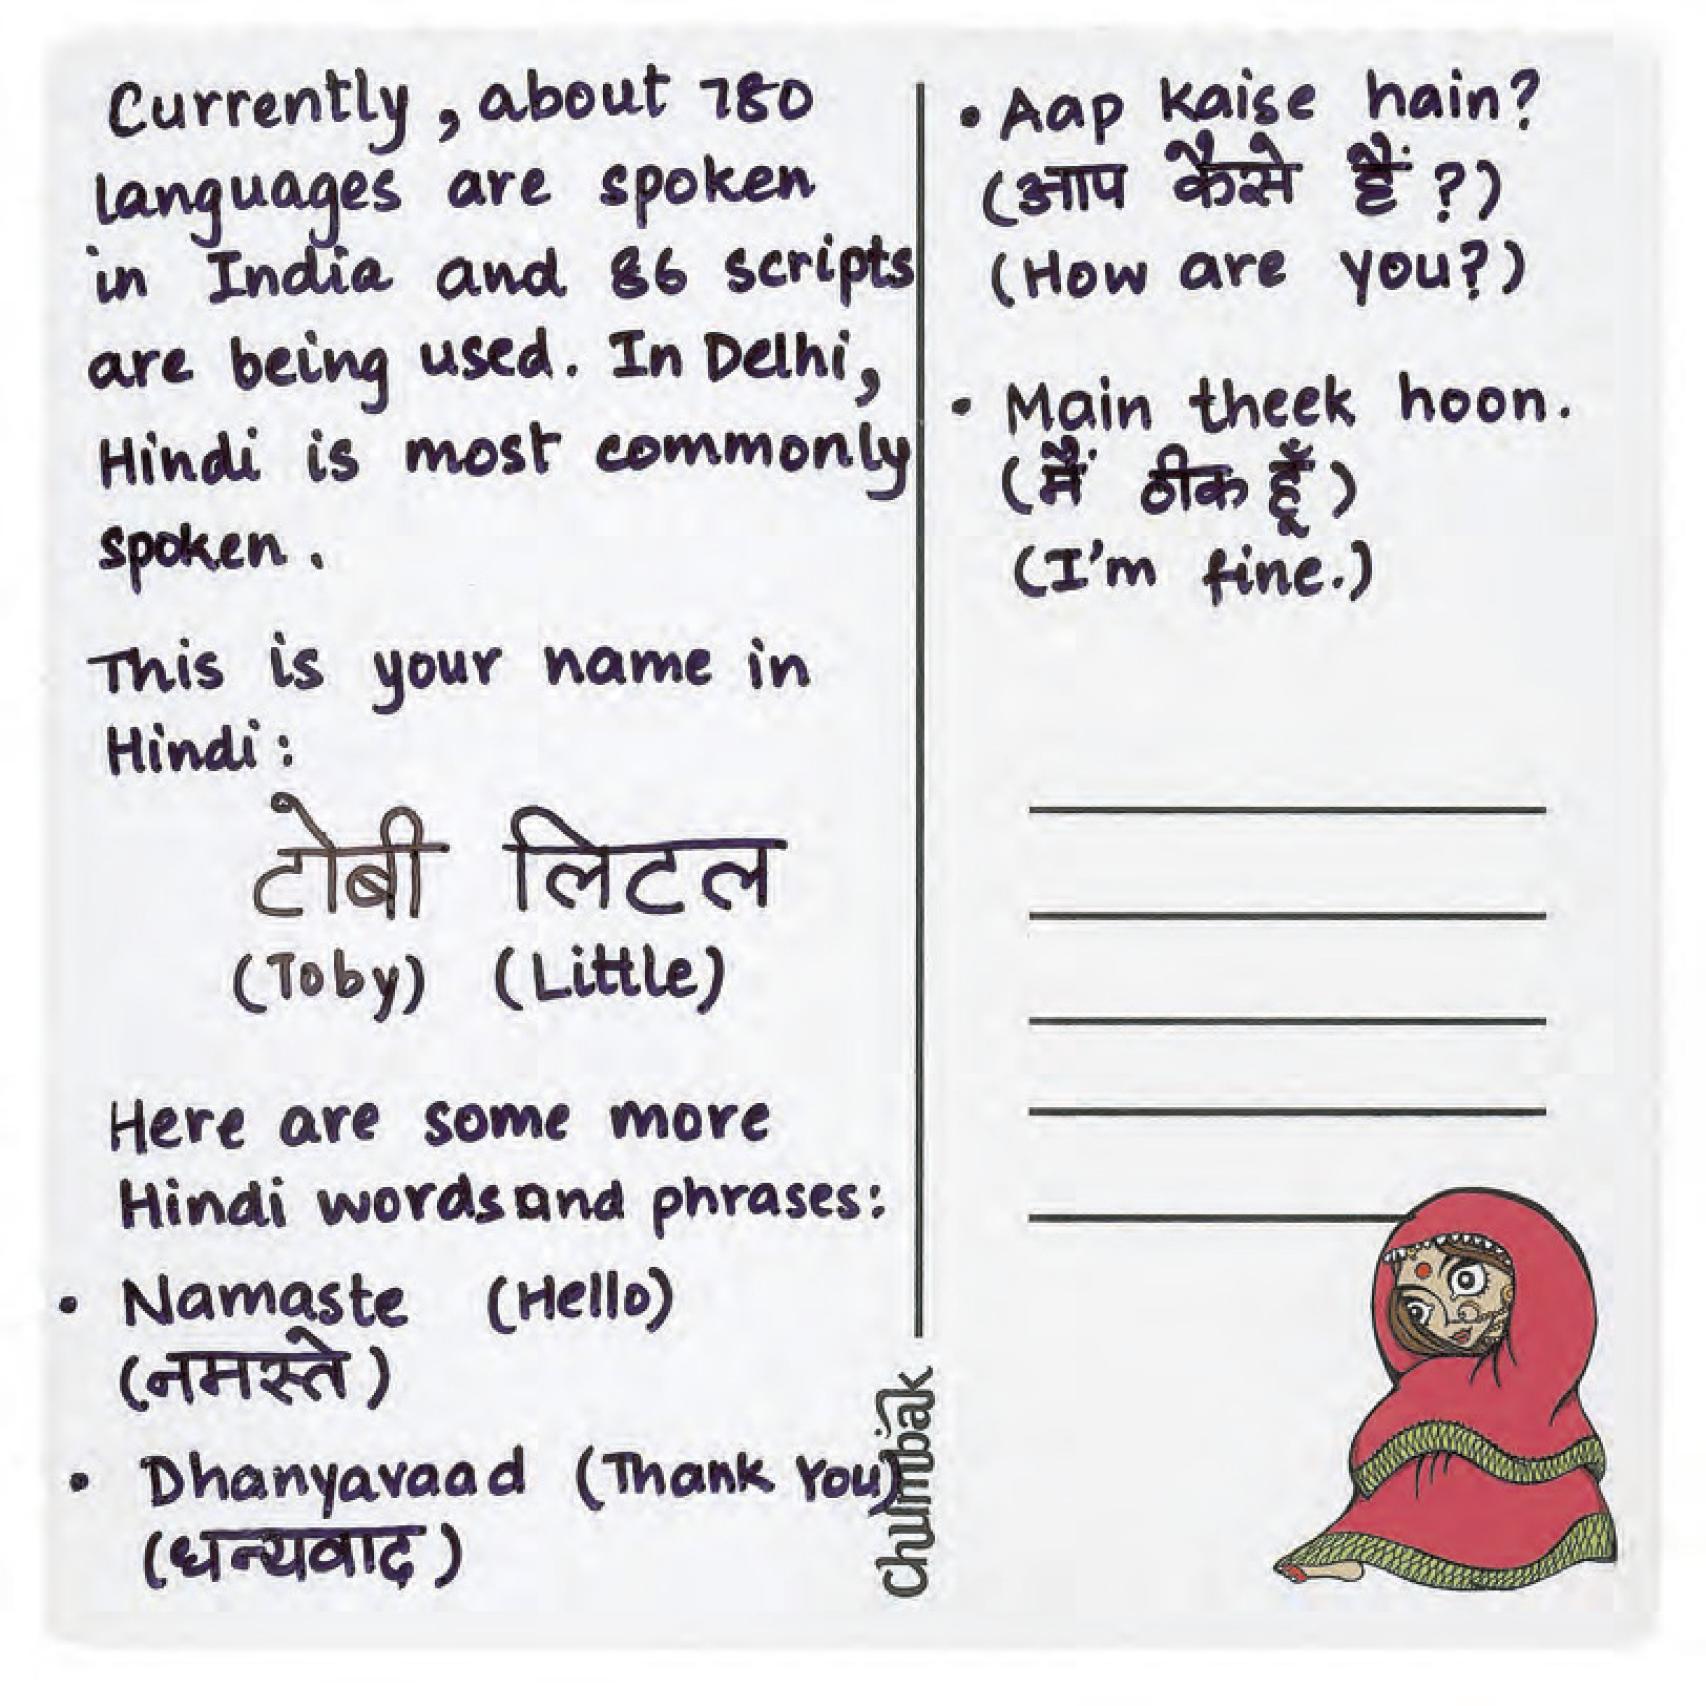 Currently, about 780
languages are spoken
in India and 86 scripts
are being used. In Delhi,
Hindi is most commonly
spoken.
This is your name in
Hindi:
टोबी लिटल
(Toby) (Little)
Here are some more
Hindi words and phrases:
• Namaste (Hello)
(नमस्ते)
• Dhanyavaad (Thank You)
(धन्यवाद)
• Aap kaise hain?
(आप कैसे हैं?)
(How are you?)
• Main theek hoon.
(मैं ठीक हूँ)
(I'm fine.)
Chumbak